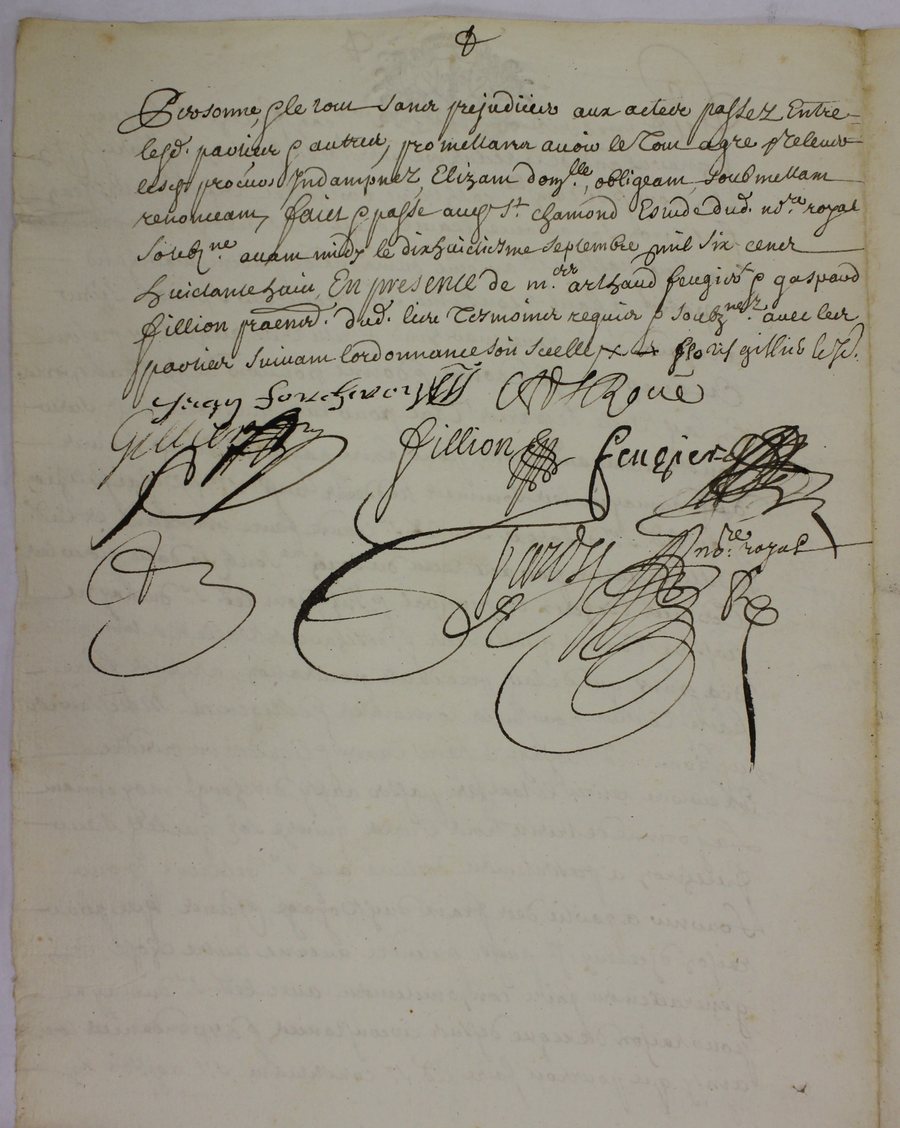 Personne, & le tout sans prejudicier aux actes passez Entre
lesd. parties & autres, promettans avoir le Tout agre & relever
lesd. procurs Indampnez, Elizam domlle, obligeam, soubmettam
renonceam, faict & passe aud. St. chamond Estude dud. nore royal
soubzne avam midy le dixhuictiesme septembre mil six cens
huictante huict, En presence de mrs. arthaud feugier & gaspard
fillion praend. dud. lieu Tesmoins requis & soubznez avec les
parties suivam lordonnance
Gillier
fillion
feugier
hardy nore royal